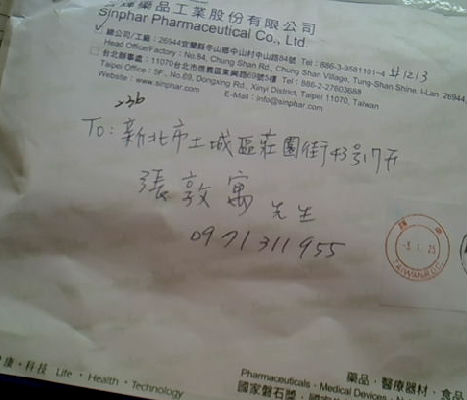 藥品工業股份有限公司
Sinphar Pharmaceutical Co., Ltd
總公司/工廠：26944宜蘭縣冬山鄉中山村中山路84號 Tel：886-3-9581101-4 #1213
Head Office/Factory：No.84, Chung Shan Rd., Chung Shan Village, Tung-Shan Shine, I-Lan 26944,
台北辦事處：11070台北市信義區東興路69號5樓 Tel：886-2-27603688
Taipei Office：5F., No.69, Dongxing Rd., Xinyi District, Taipei 11070, Taiwan
Website：www.sinphar.com E-Mail：info@sinphar.com
236
To：新北市土城區莊園街43號17F
張敦寓 先生
0971311955
TAIWAN
康・科技 Life・Health・Technology
藥品・醫療器材・食品
Pharmaceuticals・Medical Devices・
國家磐石獎・國家